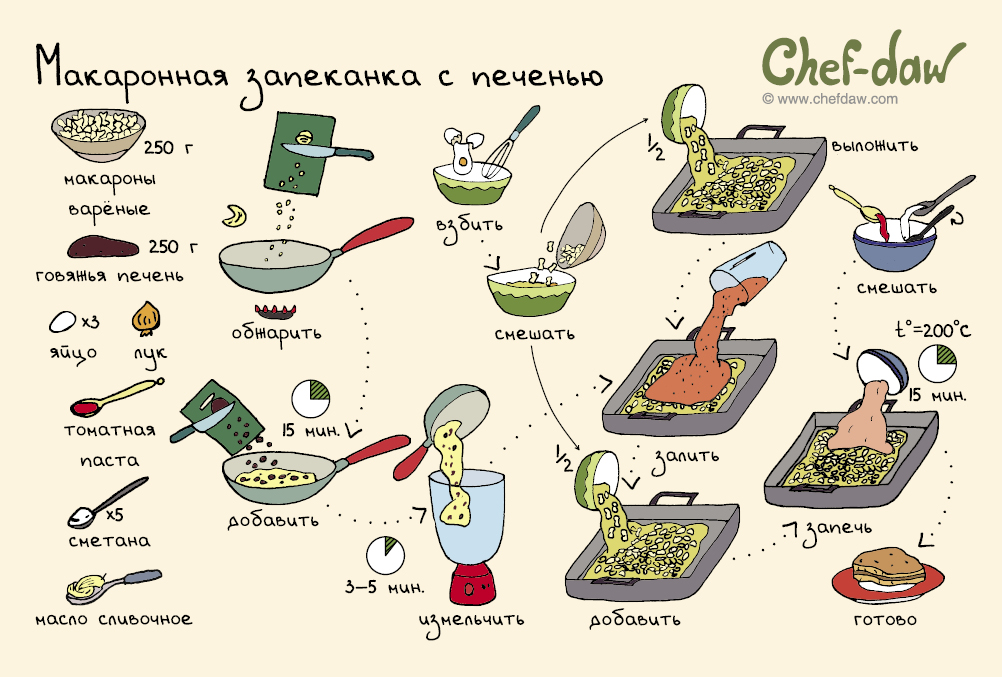 Макаронная запеканка с печенью
Chef-daw
© www.chefdaw.com
250 г
макароны
варёные
250 г
говяжья печень
x3
яйцо
лук
томатная
паста
x5
сметана
масло сливочное
обжарить
15 мин.
добавить
взбить
смешать
3–5 мин.
измельчить
1/2
выложить
залить
1/2
добавить
смешать
t°=200°C
15 мин.
запечь
готово